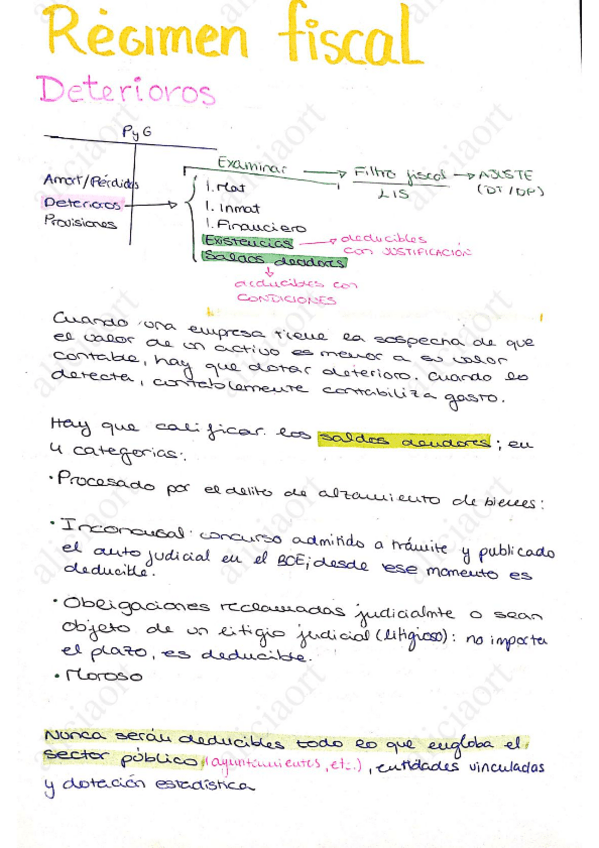 Régimen fiscal
Deterioros
PyG
Examinar → Filtro fiscal → AJUSTE
LIS (DT/DP)
Amort/Pérdidas
Deterioros →
Provisiones
I. Mat
I. Inmat
I. Financiero
Existencias → deducibles
con JUSTIFICACIÓN
Saldos deudores
deducibles con
CONDICIONES
Cuando una empresa tiene la sospecha de que
el valor de un activo es menor a su valor
contable, hay que dotar deterioro. Cuando lo
detecta, contablemente contabiliza gasto.
Hay que calificar los saldos deudores; en
4 categorías:
• Procesado por el delito de alzamiento de bienes:
• Inconcusal: concurso admitido a trámite y publicado
el auto judicial en el BOE; desde ese momento es
deducible.
• Obligaciones reclamadas judicialmte o sean
objeto de un litigio judicial (litigioso): no importa
el plazo, es deducible.
• Moroso
Nunca serán deducibles todo lo que engloba el
sector público (ayuntamientos, etc.), entidades vinculadas
y dotación estadística
aliciaort